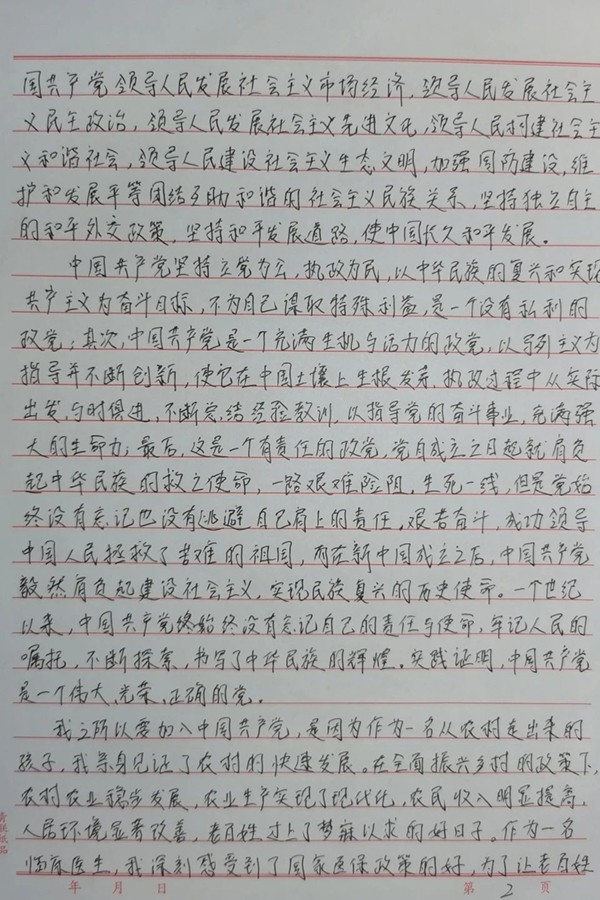 国共产党领导人民发展社会主义市场经济，领导人民发展社会主
义民主政治，领导人民发展社会主义先进文化，领导人民构建社会主
义和谐社会，领导人民建设社会主义生态文明，加强国防建设，维
护和发展平等团结互助和谐的社会主义民族关系，坚持独立自主
的和平外交政策，坚持和平发展道路，使中国长久和平发展。
中国共产党坚持立党为公，执政为民，以中华民族的复兴和实现
共产主义为奋斗目标，不为自己谋取特殊利益，是一个没有私利的
政党；其次，中国共产党是一个充满生机与活力的政党，以马列主义为
指导并不断创新，使它在中国土壤上生根发芽，执政过程中从实际
出发，与时俱进，不断总结经验教训，以指导党的奋斗事业，充满强
大的生命力；最后，这是一个有责任的政党，党自成立之日起就肩负
起中华民族的救亡使命，一路艰难险阻，生死一线，但是党始
终没有忘记也没有逃避自己肩上的责任，艰苦奋斗，成功领导
中国人民拯救了苦难的祖国，而在新中国成立之后，中国共产党
毅然肩负起建设社会主义，实现民族复兴的历史使命。一个世纪
以来，中国共产党终始终没有忘记自己的责任与使命，牢记人民的
嘱托，不断探索，书写了中华民族的辉煌。实践证明，中国共产党
是一个伟大、光荣、正确的党。
我之所以要加入中国共产党，是因为作为一名从农村走出来的
孩子，我亲身见证了农村的快速发展。在全面振兴乡村的政策下，
农村农业稳步发展，农业生产实现了现代化，农民收入明显提高，
人居环境显著改善，老百姓过上了梦寐以求的好日子。作为一名
临床医生，我深刻感受到了国家医保政策的好，为了让老百姓
年 月 日 第 2 页